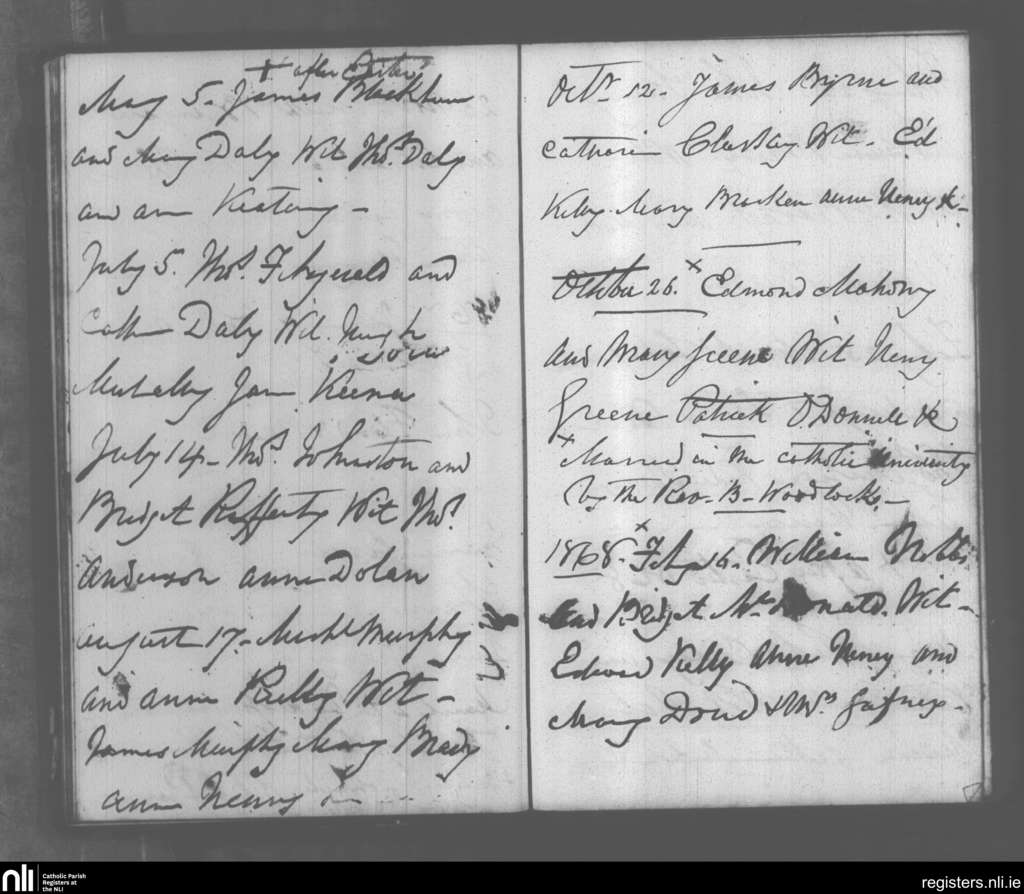 + after Easter
May 5. James Blackburn
and Mary Daly Wit Thos. Daly
and ann Keating -
July 5. Thos. Fitzgerald and
Cath Daly Wit. Hugh
Jane Keena
July 14 - Thos. Johnston and
Bridget Rafferty Wit Thos.
Anderson anne Dolan
august 17. - Michl Murphy
and anne Reilly Wit -
James Murphy Mary Brady
anne Heany
Octr. 12 - James Byrne and
Catharin Wit. Ed
Kelly Mary Bracken anne Heney &c -
October 26. x Edmond Mahony
and Mary Greene Wit Henry
Greene Patrick O'Donnell &c
x Married in the catholic University
by the Rev. B - Woodlock -
1868. x Feby 16. William
and Bridget Mc Donald. Wit -
Edward Kelly Anne Heney and
Mary &
nli
Catholic Parish
Registers at
the NLI
registers.nli.ie